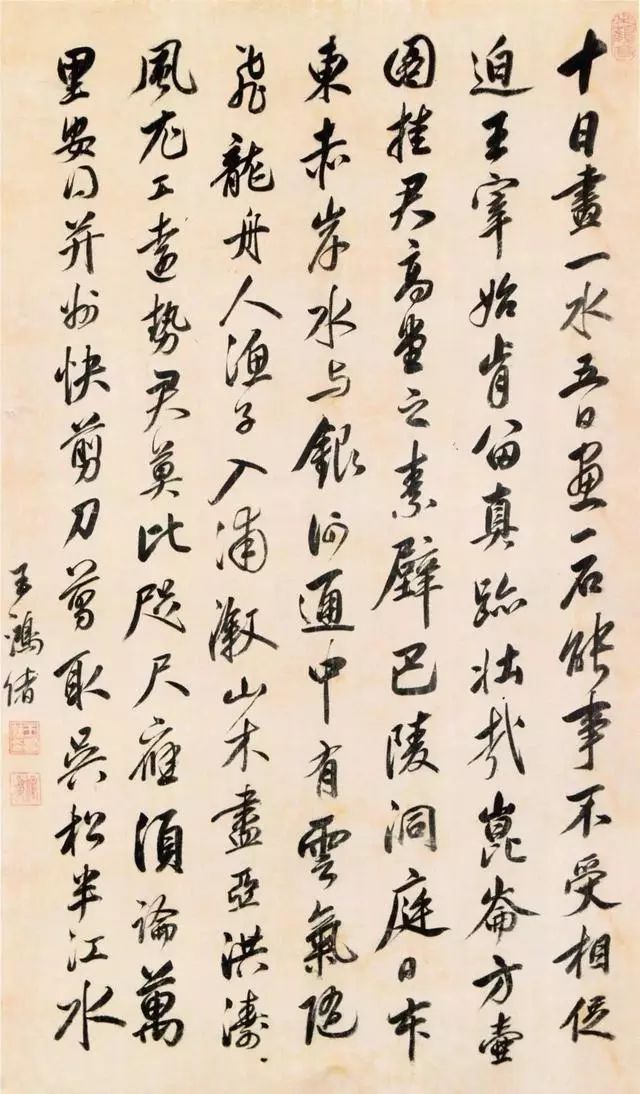 十日畫一水五日画一石能事不受相促
迫王宰始肯留真跡壯哉崑崙方壺
圖挂君高堂之素壁巴陵洞庭日本
東赤岸水与銀河通中有雲氣隨
飛龍舟人漁子入浦漵山木盡亞洪濤
風尤工遠勢君莫比咫尺應須論萬
里安得并州快剪刀剪取吳松半江水
王鴻緒